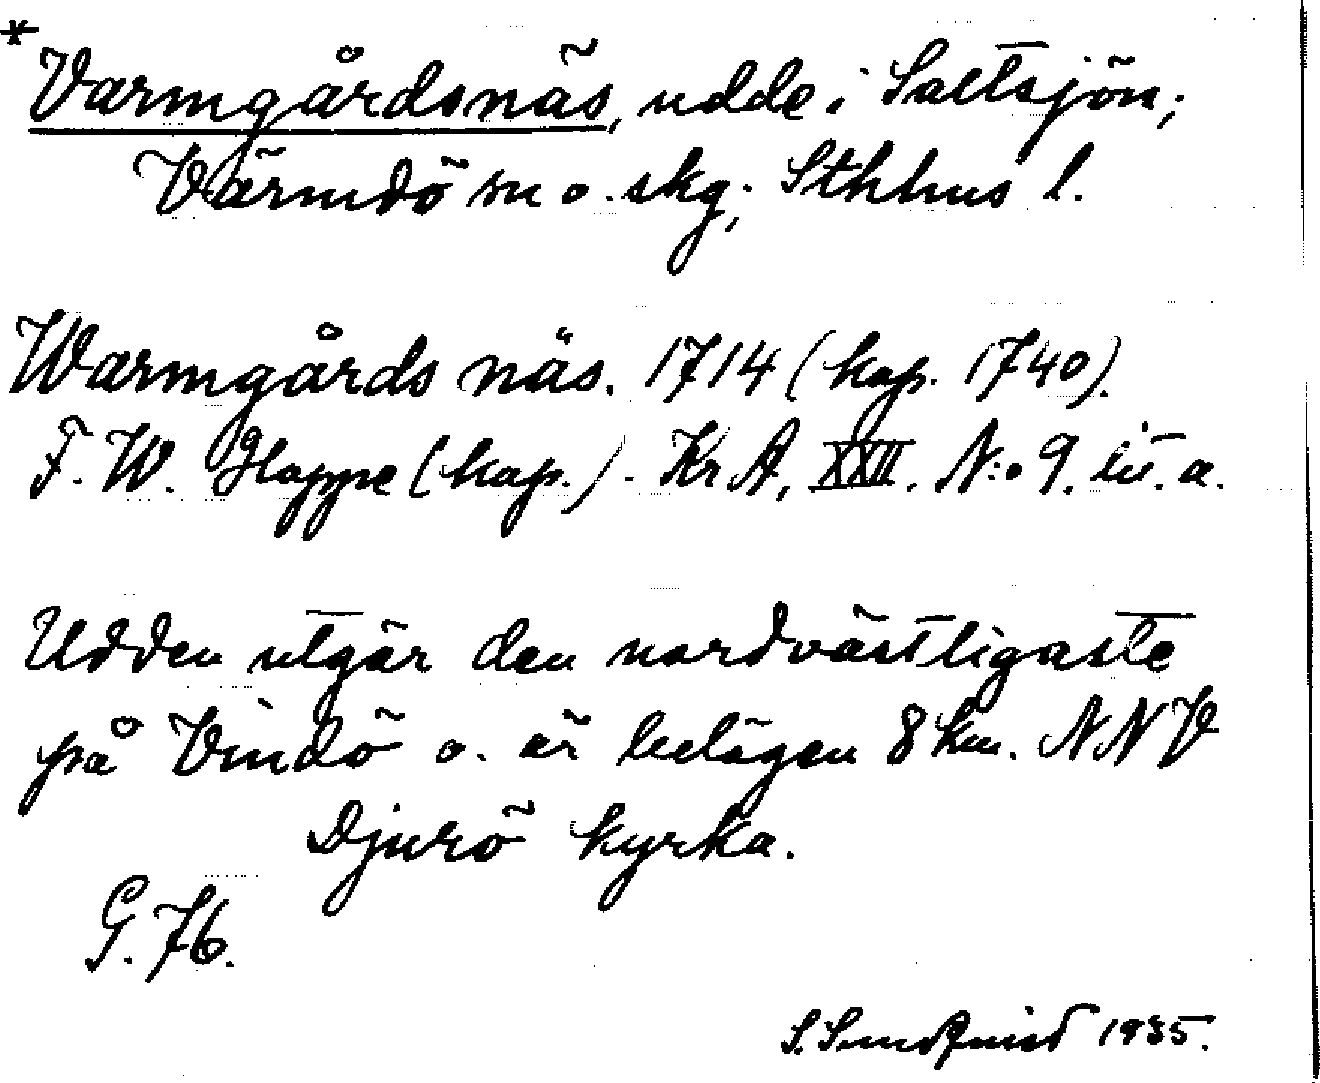 * Varmgårdsnäs, udde i Saltsjön;
Värmdö sn o. skg; Sthlms l.
Warmgårds näs. 1714 (kop. 1740).
F. W. Hoppe (kop.). Kr A, XXII. N:o 9. lit. a.
Udden utgör den nordvästligaste
på Vindö o. är belägen 8 km. NNV
Djurö kyrka.
G. 76.
S. Sundquist 1935.